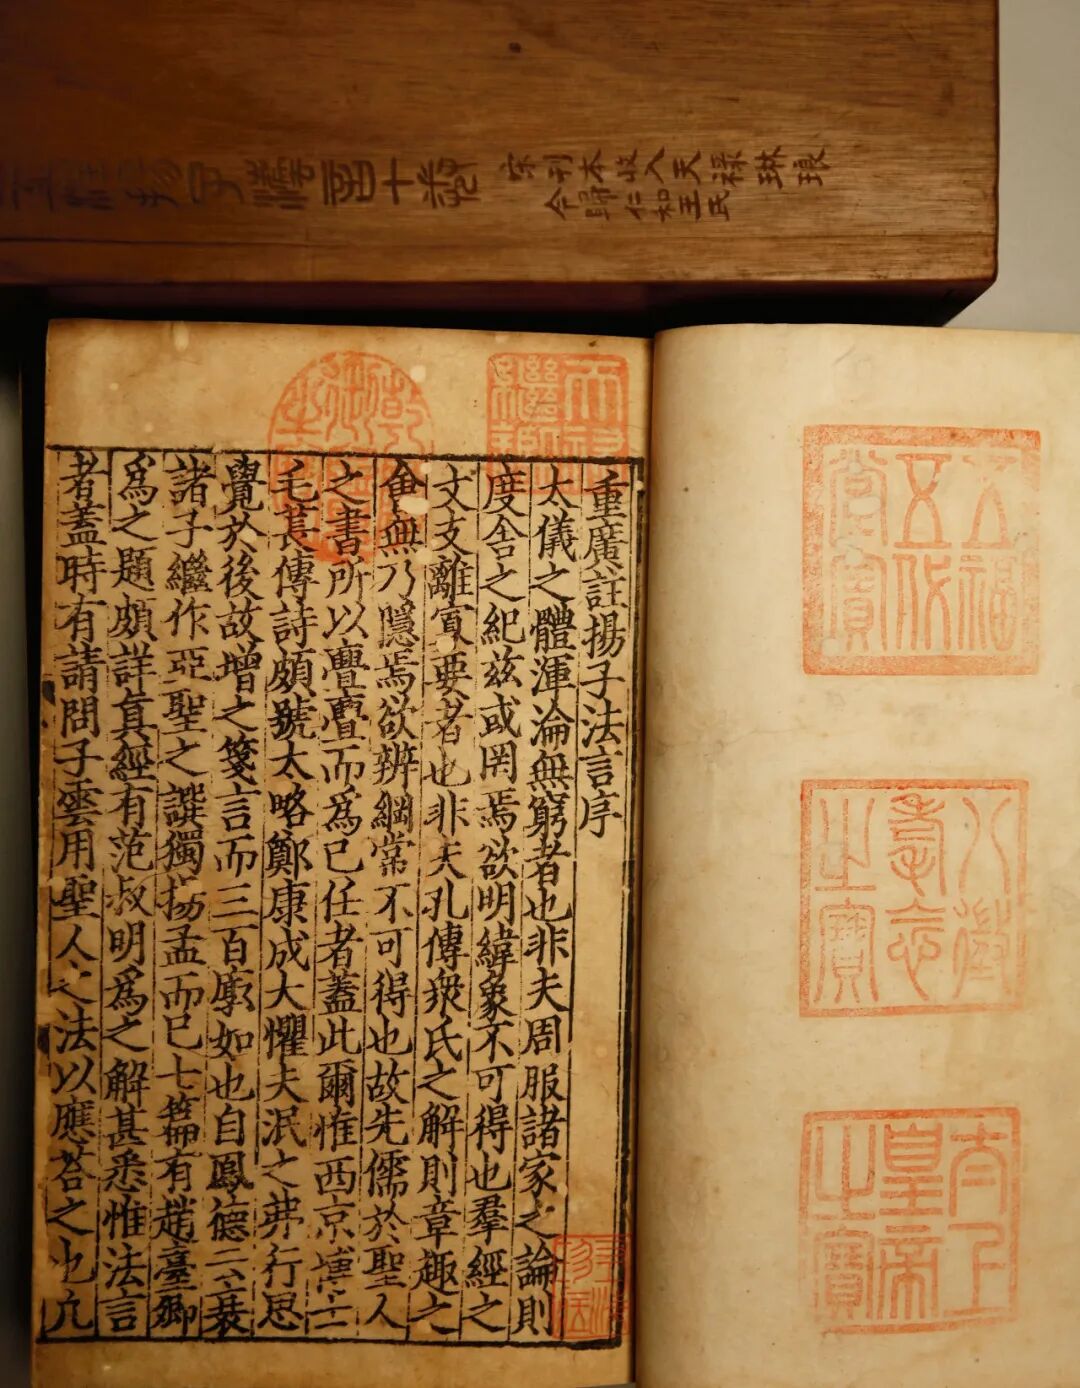 宋刊本收入天祿琳琅
今歸仁和王氏
五福五代堂寶
八徵耄念之寶
太上皇帝之寶
天祿繼鑑
乾隆御覽之寶
重廣註揚子法言序
太儀之體渾淪無窮者也非夫周服諸家之論則
度舍之紀茲或罔焉欲明緯象不可得也羣經之
文支離寡要者也非夫孔傳衆氏之解則章趣之
會無乃隱焉欲辨綱常不可得也故先儒於聖人
之書所以亹亹而爲已任者蓋此爾惟西京博士
毛萇傳詩頗號太略鄭康成大懼夫泯之弗行思
覺於後故增之箋言而三百廓如也自鳳德云衰
諸子繼作亞聖之譔獨揚孟而已七篇有趙臺卿
爲之題頗詳真經有范叔明爲之解甚悉惟法言
者蓋時有請問子雲用聖人之法以應荅之也凢